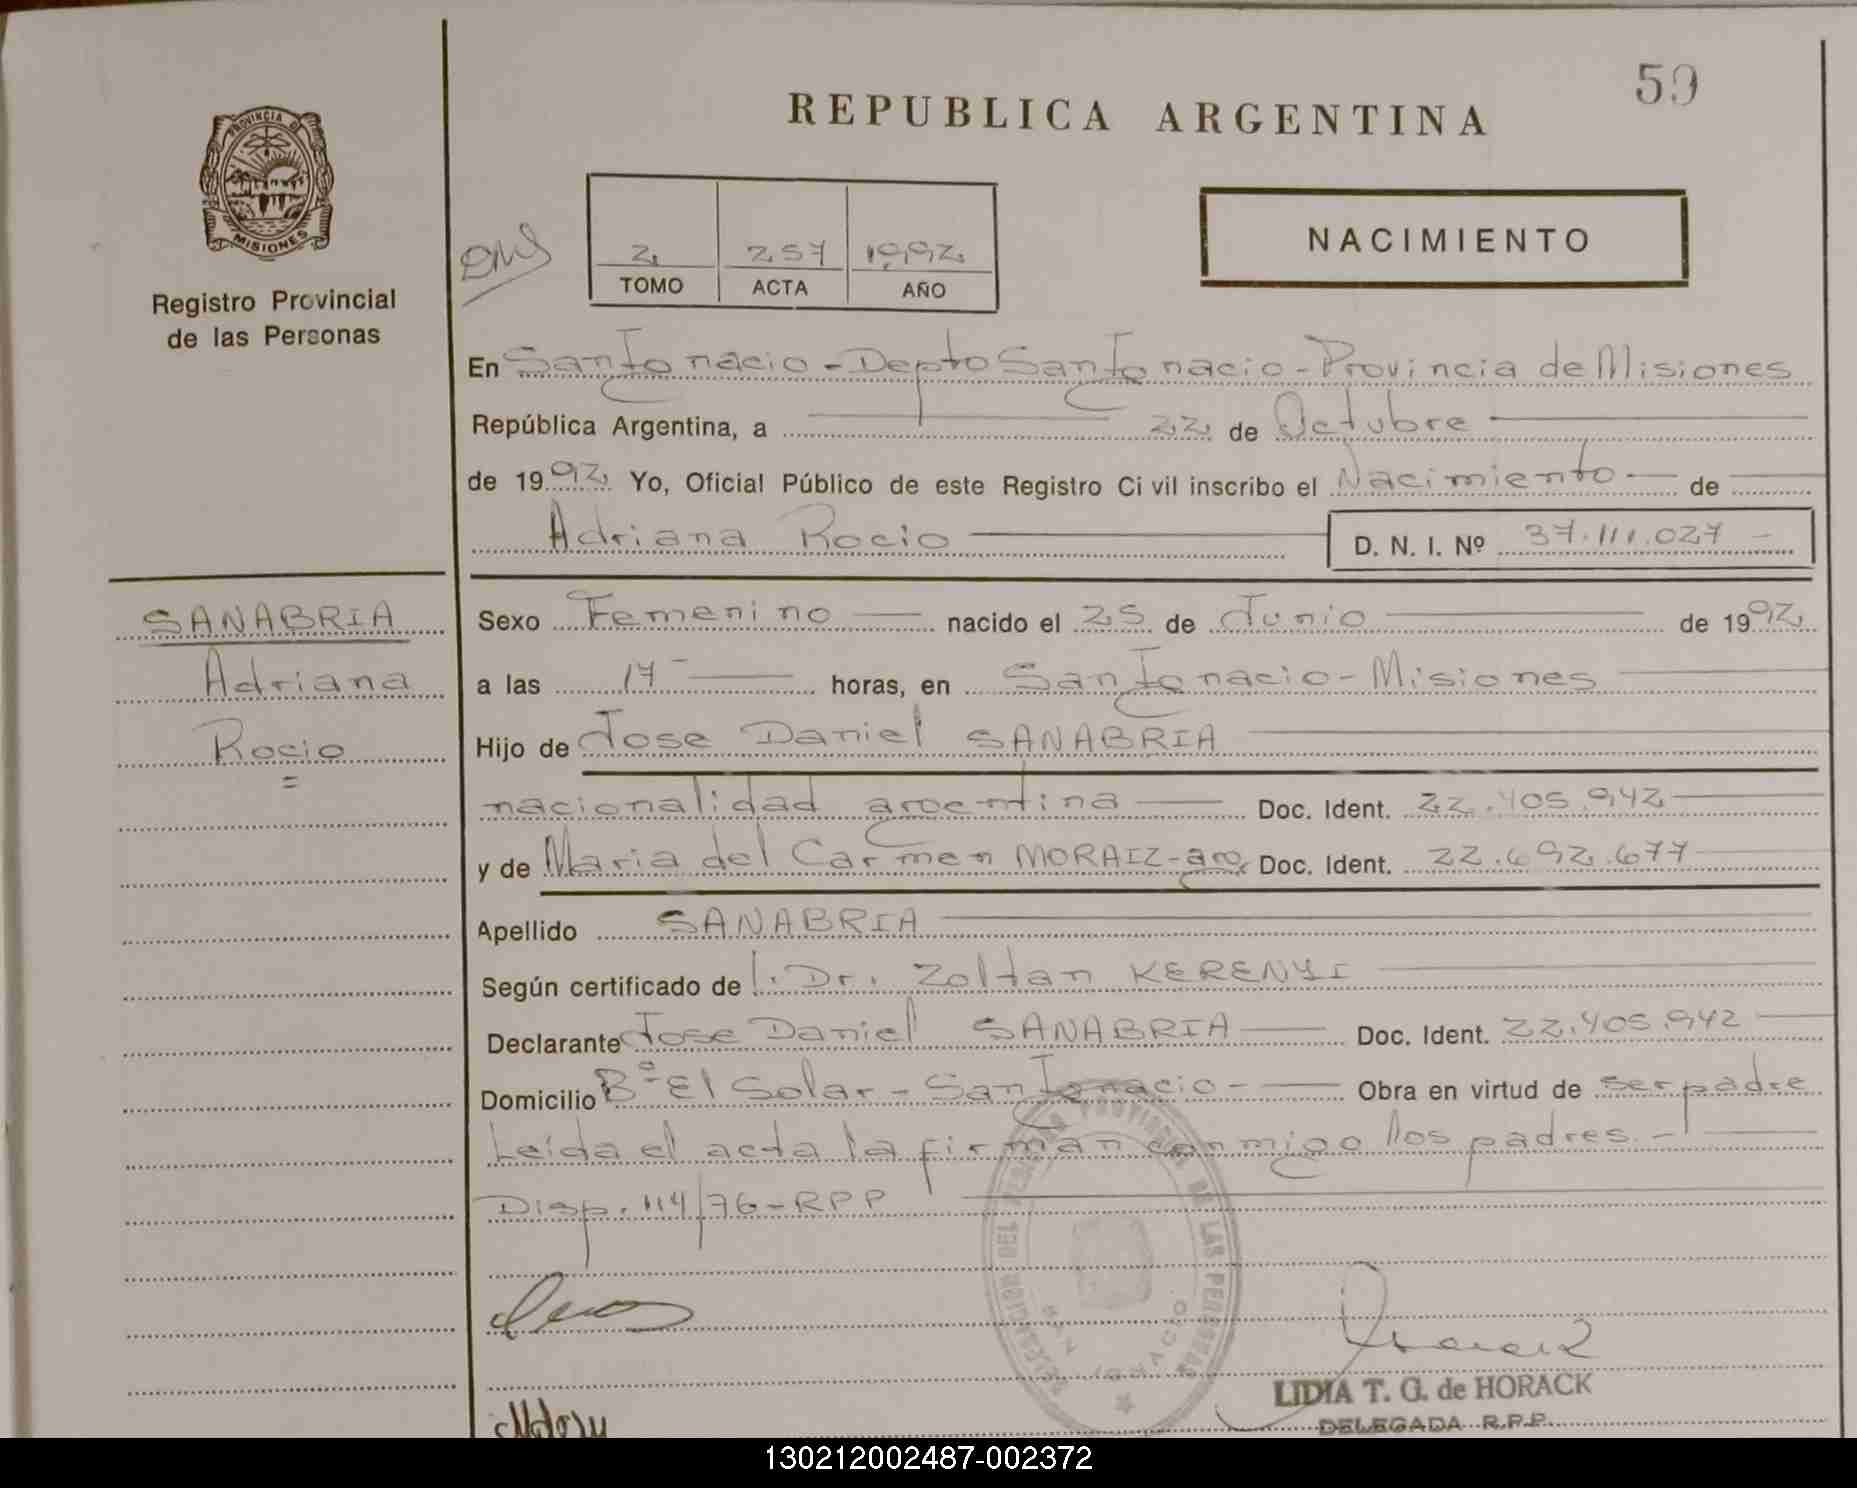 59
REPUBLICA ARGENTINA
PROVINCIA DE
MISIONES
Registro Provincial
de las Personas
DNS
2 257 1992
TOMO ACTA AÑO
NACIMIENTO
En San Ignacio - Depto San Ignacio - Provincia de Misiones
República Argentina, a 22 de Octubre
de 1992 Yo, Oficial Público de este Registro Civil inscribo el Nacimiento de
Adriana Rocio D. N. I. Nº 37.111.027 -
SANABRIA
Adriana
Rocio
=
Sexo Femenino nacido el 25 de Junio de 1992
a las 17 horas, en San Ignacio - Misiones
Hijo de Jose Daniel SANABRIA
nacionalidad argentina Doc. Ident. 22.405.942
y de Maria del Carmen MORAIZ - arg. Doc. Ident. 22.692.677
Apellido SANABRIA
Según certificado de Dr. Zoltan KERENYI
Declarante Jose Daniel SANABRIA Doc. Ident. 22.405.942
Domicilio Bº El Solar - San Ignacio - Obra en virtud de ser padre
Leida el acta la firman conmigo los padres. -
Disp. 114/76 - RPP
DELEGACION DEL REGISTRO PROVINCIAL DE LAS PERSONAS
SAN IGNACIO
LIDIA T. G. de HORACK
DELEGADA R.P.P.
130212002487-002372